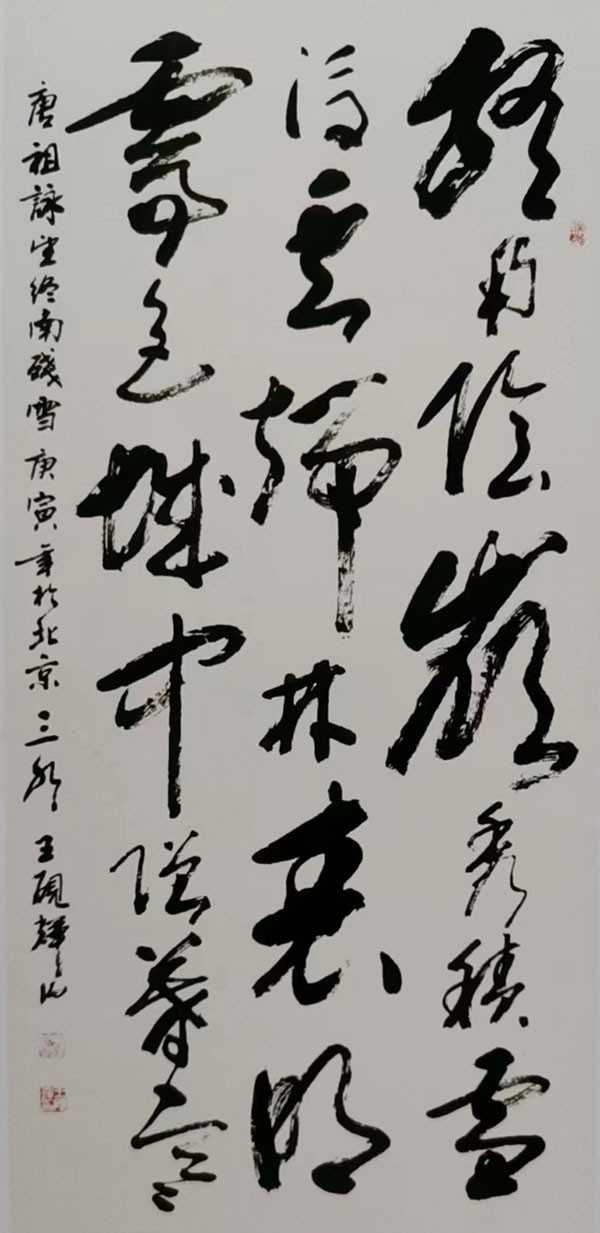 終南陰嶺秀積雪
浮雲端林表明
霽色城中增暮寒
唐祖詠望終南殘雪庚寅年於北京三王硯輝